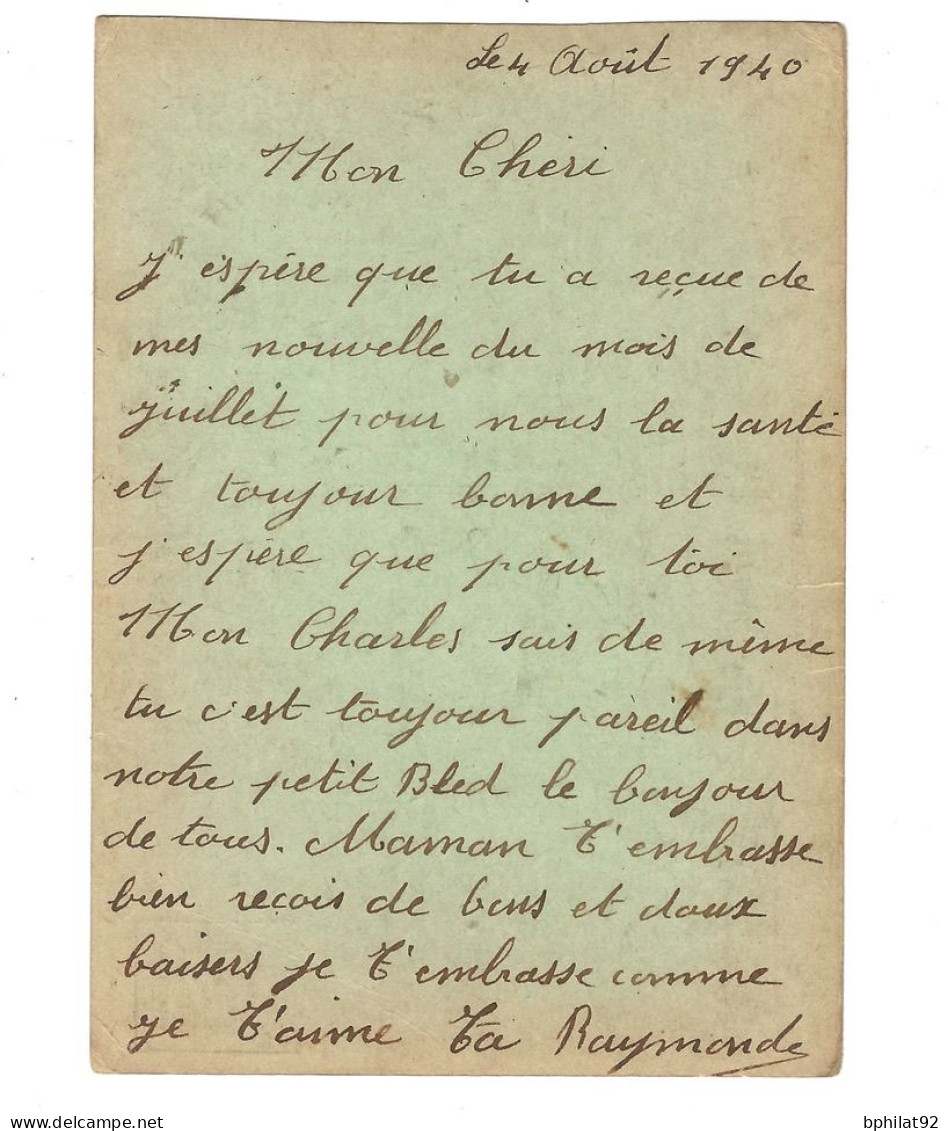 Le 4 Août 1940
Mon Chéri
J'espère que tu a reçue de
mes nouvelle du mois de
juillet pour nous la santé
et toujour bonne et
j'espère que pour toi
Mon Charles sais de même
tu c'est toujour pareil dans
notre petit Bled le bonjour
de tous. Maman t'embrasse
bien reçois de bons et doux
baisers je t'embrasse comme
je t'aime Ta Raymonde
bphilat92